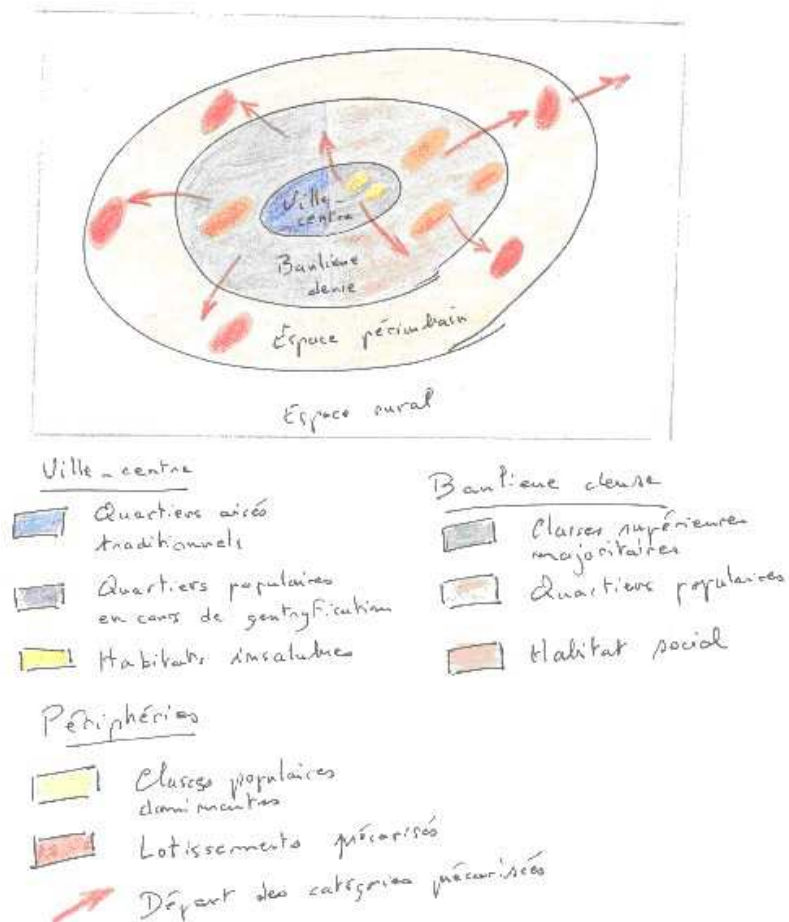 Ville-
centre
Banlieue
dense
Espace périurbain
Espace rural
Ville-centre
Quartiers aisés
traditionnels
Quartiers populaires
en cours de gentryfication
Habitats insalubres
Banlieue dense
Classes supérieures
majoritaires
Quartiers populaires
Habitat social
Périphéries
Classes populaires
dominantes
Lotissements précarisés
Départ des catégories précarisées